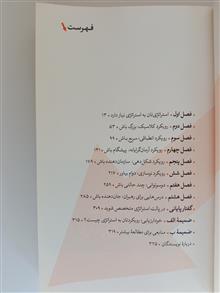 فهرست
فصل اول • استراتژی‌تان به استراتژی نیاز دارد • ۱۳
فصل دوم • رویکرد کلاسیک: بزرگ باش • ۵۳
فصل سوم • رویکرد انطباقی: سریع باش • ۹۹
فصل چهارم • رویکرد آرمان‌گرایانه: پیشگام باش • ۱۴۱
فصل پنجم • رویکرد شکل‌دهی: سازمان‌دهنده باش • ۱۷۹
فصل شش • رویکرد نوسازی: دوام بیاور • ۲۱۷
فصل هفتم • دوسوتوانی: چند حالتی باش • ۲۵۹
فصل هشتم • درس‌هایی برای رهبران: جان‌دهنده باش • ۲۸۵
گفتار پایانی • در پالت استراتژی متخصص شوید • ۳۰۹
ضمیمه الف • خودارزیابی: رویکردتان به استراتژی چیست؟ • ۳۱۵
ضمیمه ب • منابعی برای مطالعهٔ بیشتر • ۳۱۹
درباره نویسندگان • ۳۲۵